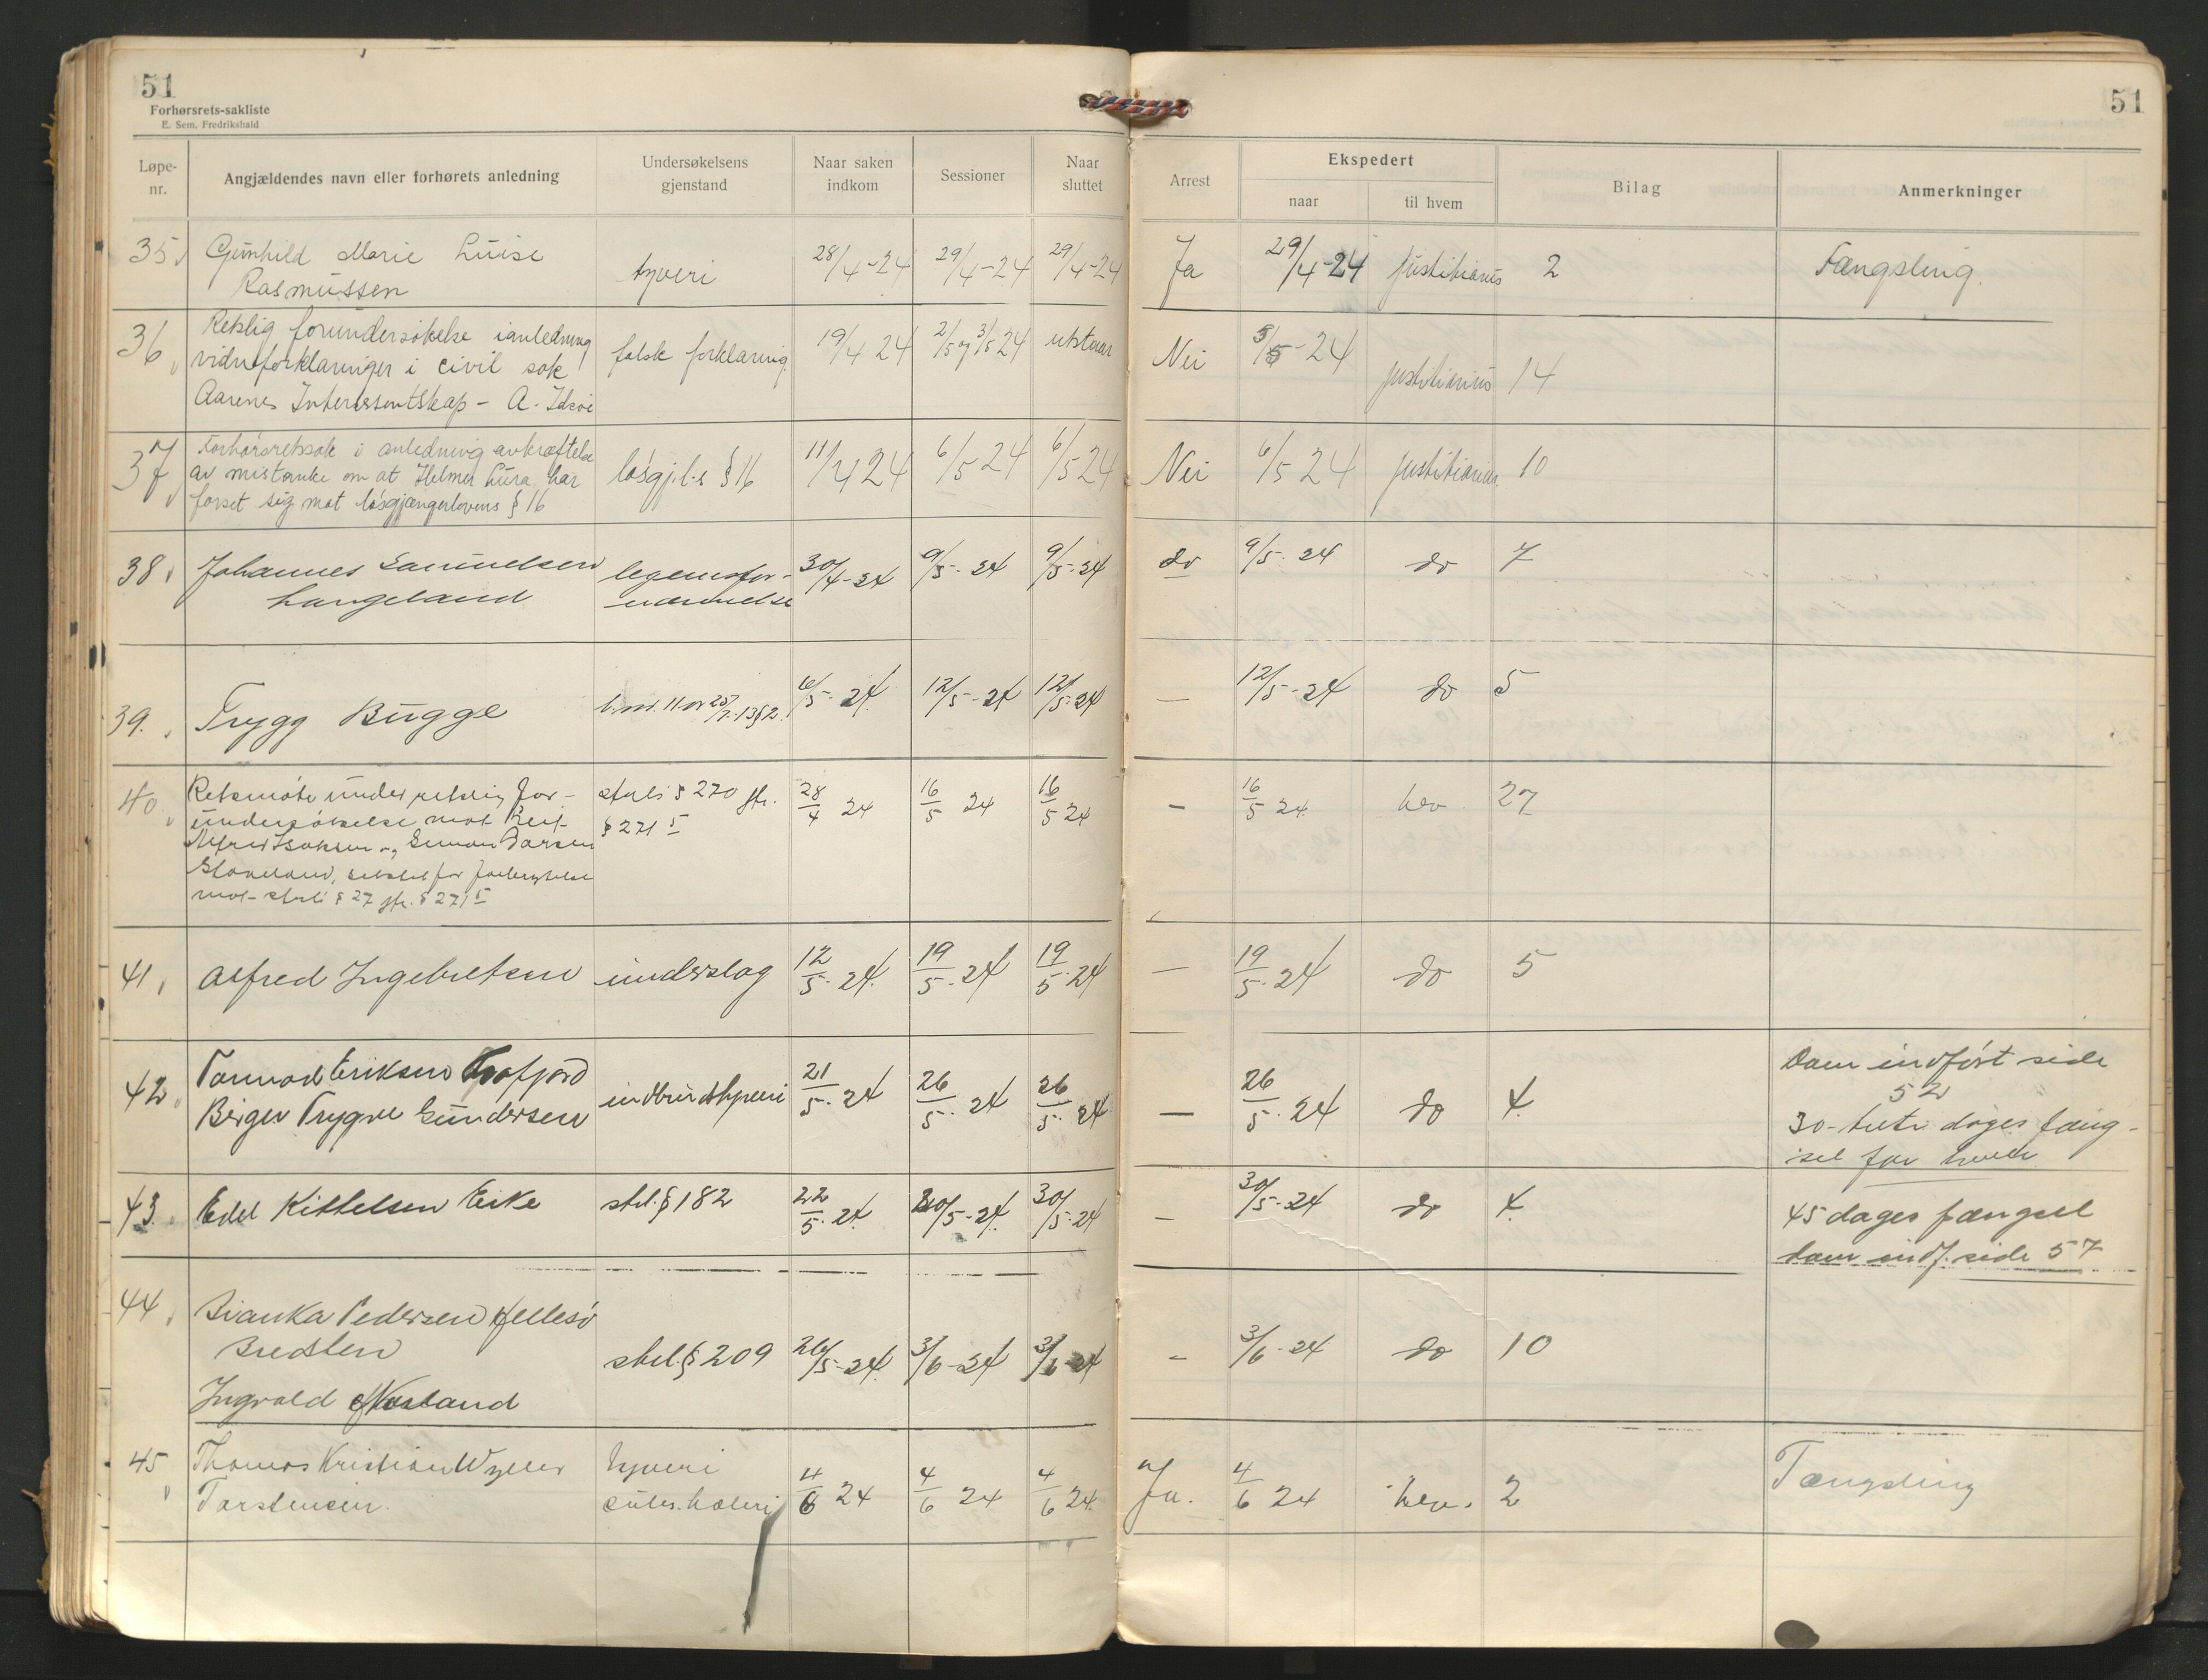 51
Forhørsrets-sakliste
E. Sem, Fredrikshald
51
Løpe-nr.
Angjældendes navn eller forhørets anledning
Undersøkelsens gjenstand
Naar saken indkom
Sessioner
Naar sluttet
Arrest
Ekspedert
naar
til hvem
Bilag
Anmerkninger
35 Gunhild Marie Luise
Rasmussen
tyveri 28/4-24 29/4-24 29/4-24 Ja 29/4-24 justitiarius 2 Fængsling.
36 Retslig forundersökelse ianledning
vidneforklaringer i civil sak
Aarenes Interessentskap - A.
falsk forklaring 19/4 24 2/5 og 3/5 24 utstaar Nei 3/5-24 justitiarius 14
37 Forhörsretssak i anledning avkræftelse
av mistanke om at Helmer Lura har
forset sig mot lösgjængerlovens § 16
lösgj.l.s § 16 11/4 24 6/5 24 6/5 24 Nei 6/5 24 justitiarius 10
38 Johannes Samuelsen
Langeland
legemsfor-
nærmelse
30/4-24 9/5-24 9/5-24 do 9/5-24 do 7
39. Trygg Bugge
6/5-24 12/5-24 12/5-24 — 12/5-24 do 5
40 Retsmöte under retslig for-
undersökelse mot Leif
sigtet for forbrytelse
mot strl § 27 jfr. § 271
strls § 270 jfr.
§ 271
28/4 24 16/5 24 16/5 24 — 16/5 24 27
41 Alfred Ingebretsen underslag 12/5-24 19/5-24 19/5-24 — 19/5-24 do 5
42 Tormod Eriksen
Birger Trygve Gundersen
indbrudstyveri 21/5-24 26/5-24 26/5-24 — 26/5-24 do 4
Dom indfört side
52
30-treti dages fæng-
sel for hver
43. Edel Kittelsen Eike strl. § 182 22/5-24 30/5-24 30/5-24 — 30/5-24 do 4
45 dages fængsel
dom indf. side 57
44 Bianka Pedersen
Ingvald
strl. § 209 26/5-24 3/6-24 3/6-24 - 3/6-24 do 10
45 Thomas Kristian Wyller
Torstensen.
tyveri
4/6 24 4/6 24 4/6 24 Ja. 4/6 24 2 Fængsling